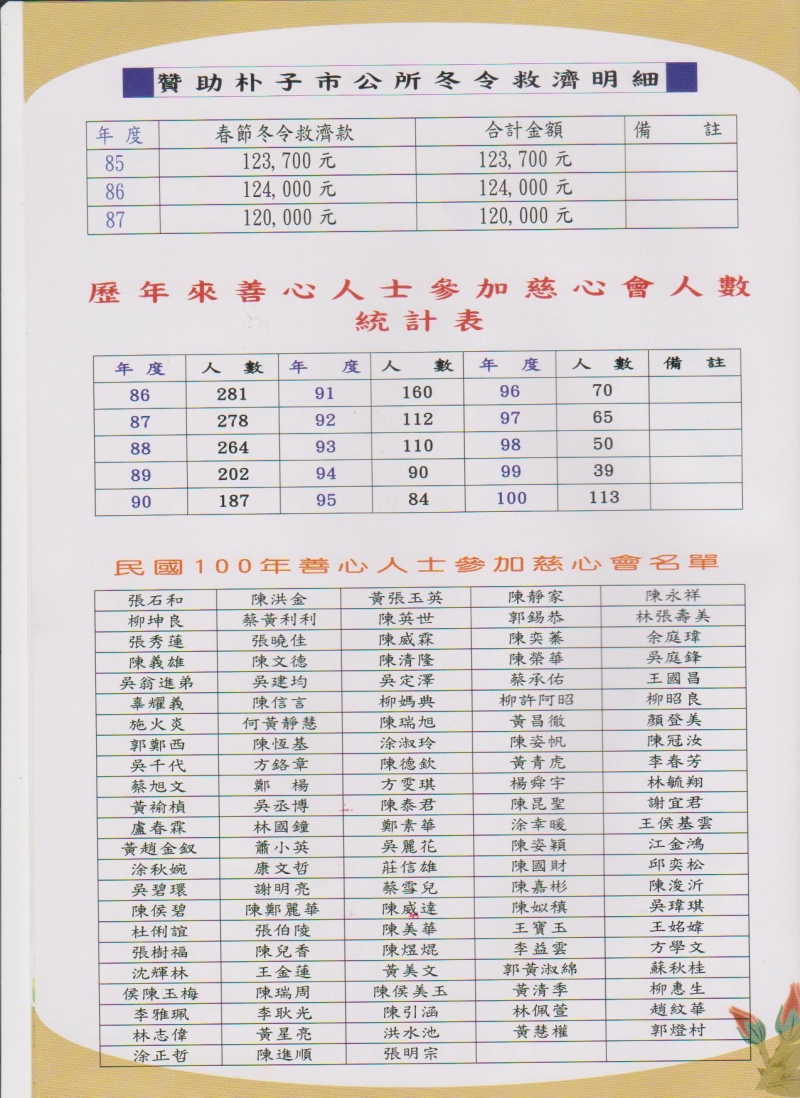 贊助朴子市公所冬令救濟明細
年度 春節冬令救濟款 合計金額 備註
85 123,700元 123,700元
86 124,000元 124,000元
87 120,000元 120,000元
歷年來善心人士參加慈心會人數
統計表
年度 人數 年度 人數 年度 人數 備註
86 281 91 160 96 70
87 278 92 112 97 65
88 264 93 110 98 50
89 202 94 90 99 39
90 187 95 84 100 113
民國100年善心人士參加慈心會名單
張石和 陳洪金 黃張玉英 陳靜家 陳永祥
柳坤良 蔡黃利利 陳英世 郭錫恭 林張壽美
張秀蓮 張曉佳 陳威霖 陳奕蓁 余庭瑋
陳義雄 陳文德 陳清隆 陳榮華 吳庭鋒
吳翁進弟 吳建均 吳定澤 蔡承佑 王國昌
辜耀義 陳信言 柳媽典 柳許阿昭 柳昭良
施火炎 何黃靜慧 陳瑞旭 黃昌徹 顏登美
郭鄭西 陳恆基 涂淑玲 陳姿帆 陳冠汝
吳千代 方鉻章 陳德欽 黃青虎 李春芳
蔡旭文 鄭 楊 方雯琪 楊舜宇 林毓翔
黃褕楨 吳丞博 陳泰君 陳昆聖 謝宜君
盧春霖 林國鐘 鄭素華 涂幸暖 王侯基雲
黃趙金釵 蕭小英 吳麗花 陳姿穎 江金鴻
涂秋婉 康文哲 莊信雄 陳國財 邱奕松
吳碧環 謝明亮 蔡雪兒 陳嘉彬 陳浚沂
陳侯碧 陳鄭麗華 陳威達 陳姒穦 吳瑋琪
杜俐誼 張伯陵 陳美華 王寶玉 王姳媁
張樹福 陳兒香 陳煜焜 李益雲 方學文
沈輝林 王金蓮 黃美文 郭黃淑綿 蘇秋桂
侯陳玉梅 陳瑞周 陳侯美玉 黃清季 柳惠生
李雅珮 李耿光 陳引涵 林佩萱 趙紋華
林志偉 黃星亮 洪水池 黃慧權 郭燈村
涂正哲 陳進順 張明宗